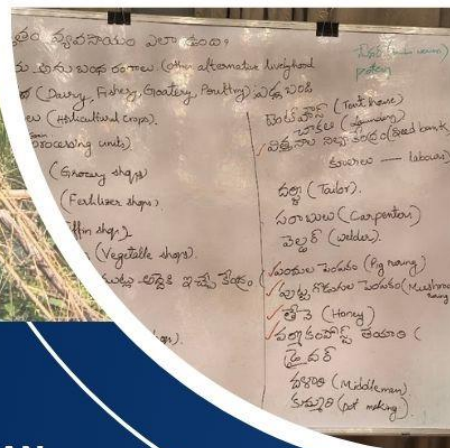 వ్యవసాయం ఎలా ఉంది?
అనుబంధ రంగాలు. (other alternative livelyhood
(Dairy, Fishery, Goatery, Poultry)
లు (Horticultural crops).
processing units)
(Grocery shops)
(Fertilizer shops)
ffin shop)
(Vegetable shops).
ఇచ్చే కేంద్రం (
pottery
టెంట్ హౌస్ (Tent house)
చాకలి (Laundry)
విత్తనాల నిల్వ కేంద్రం (Seed bank)
కూలీలు — labours)
దర్జీ (Tailor).
(Carpenters)
వెల్డర్ (Welder).
పందుల పెంపకం (Pig raring)
పుట్ట గొడుగుల పెంపకం (Mushroo
raring
తేనె (Honey)
వర్మీకంపోస్ట్ తయారి (
డ్రైవర్
దళారి (Middlemen)
కుమ్మరి (pot making).